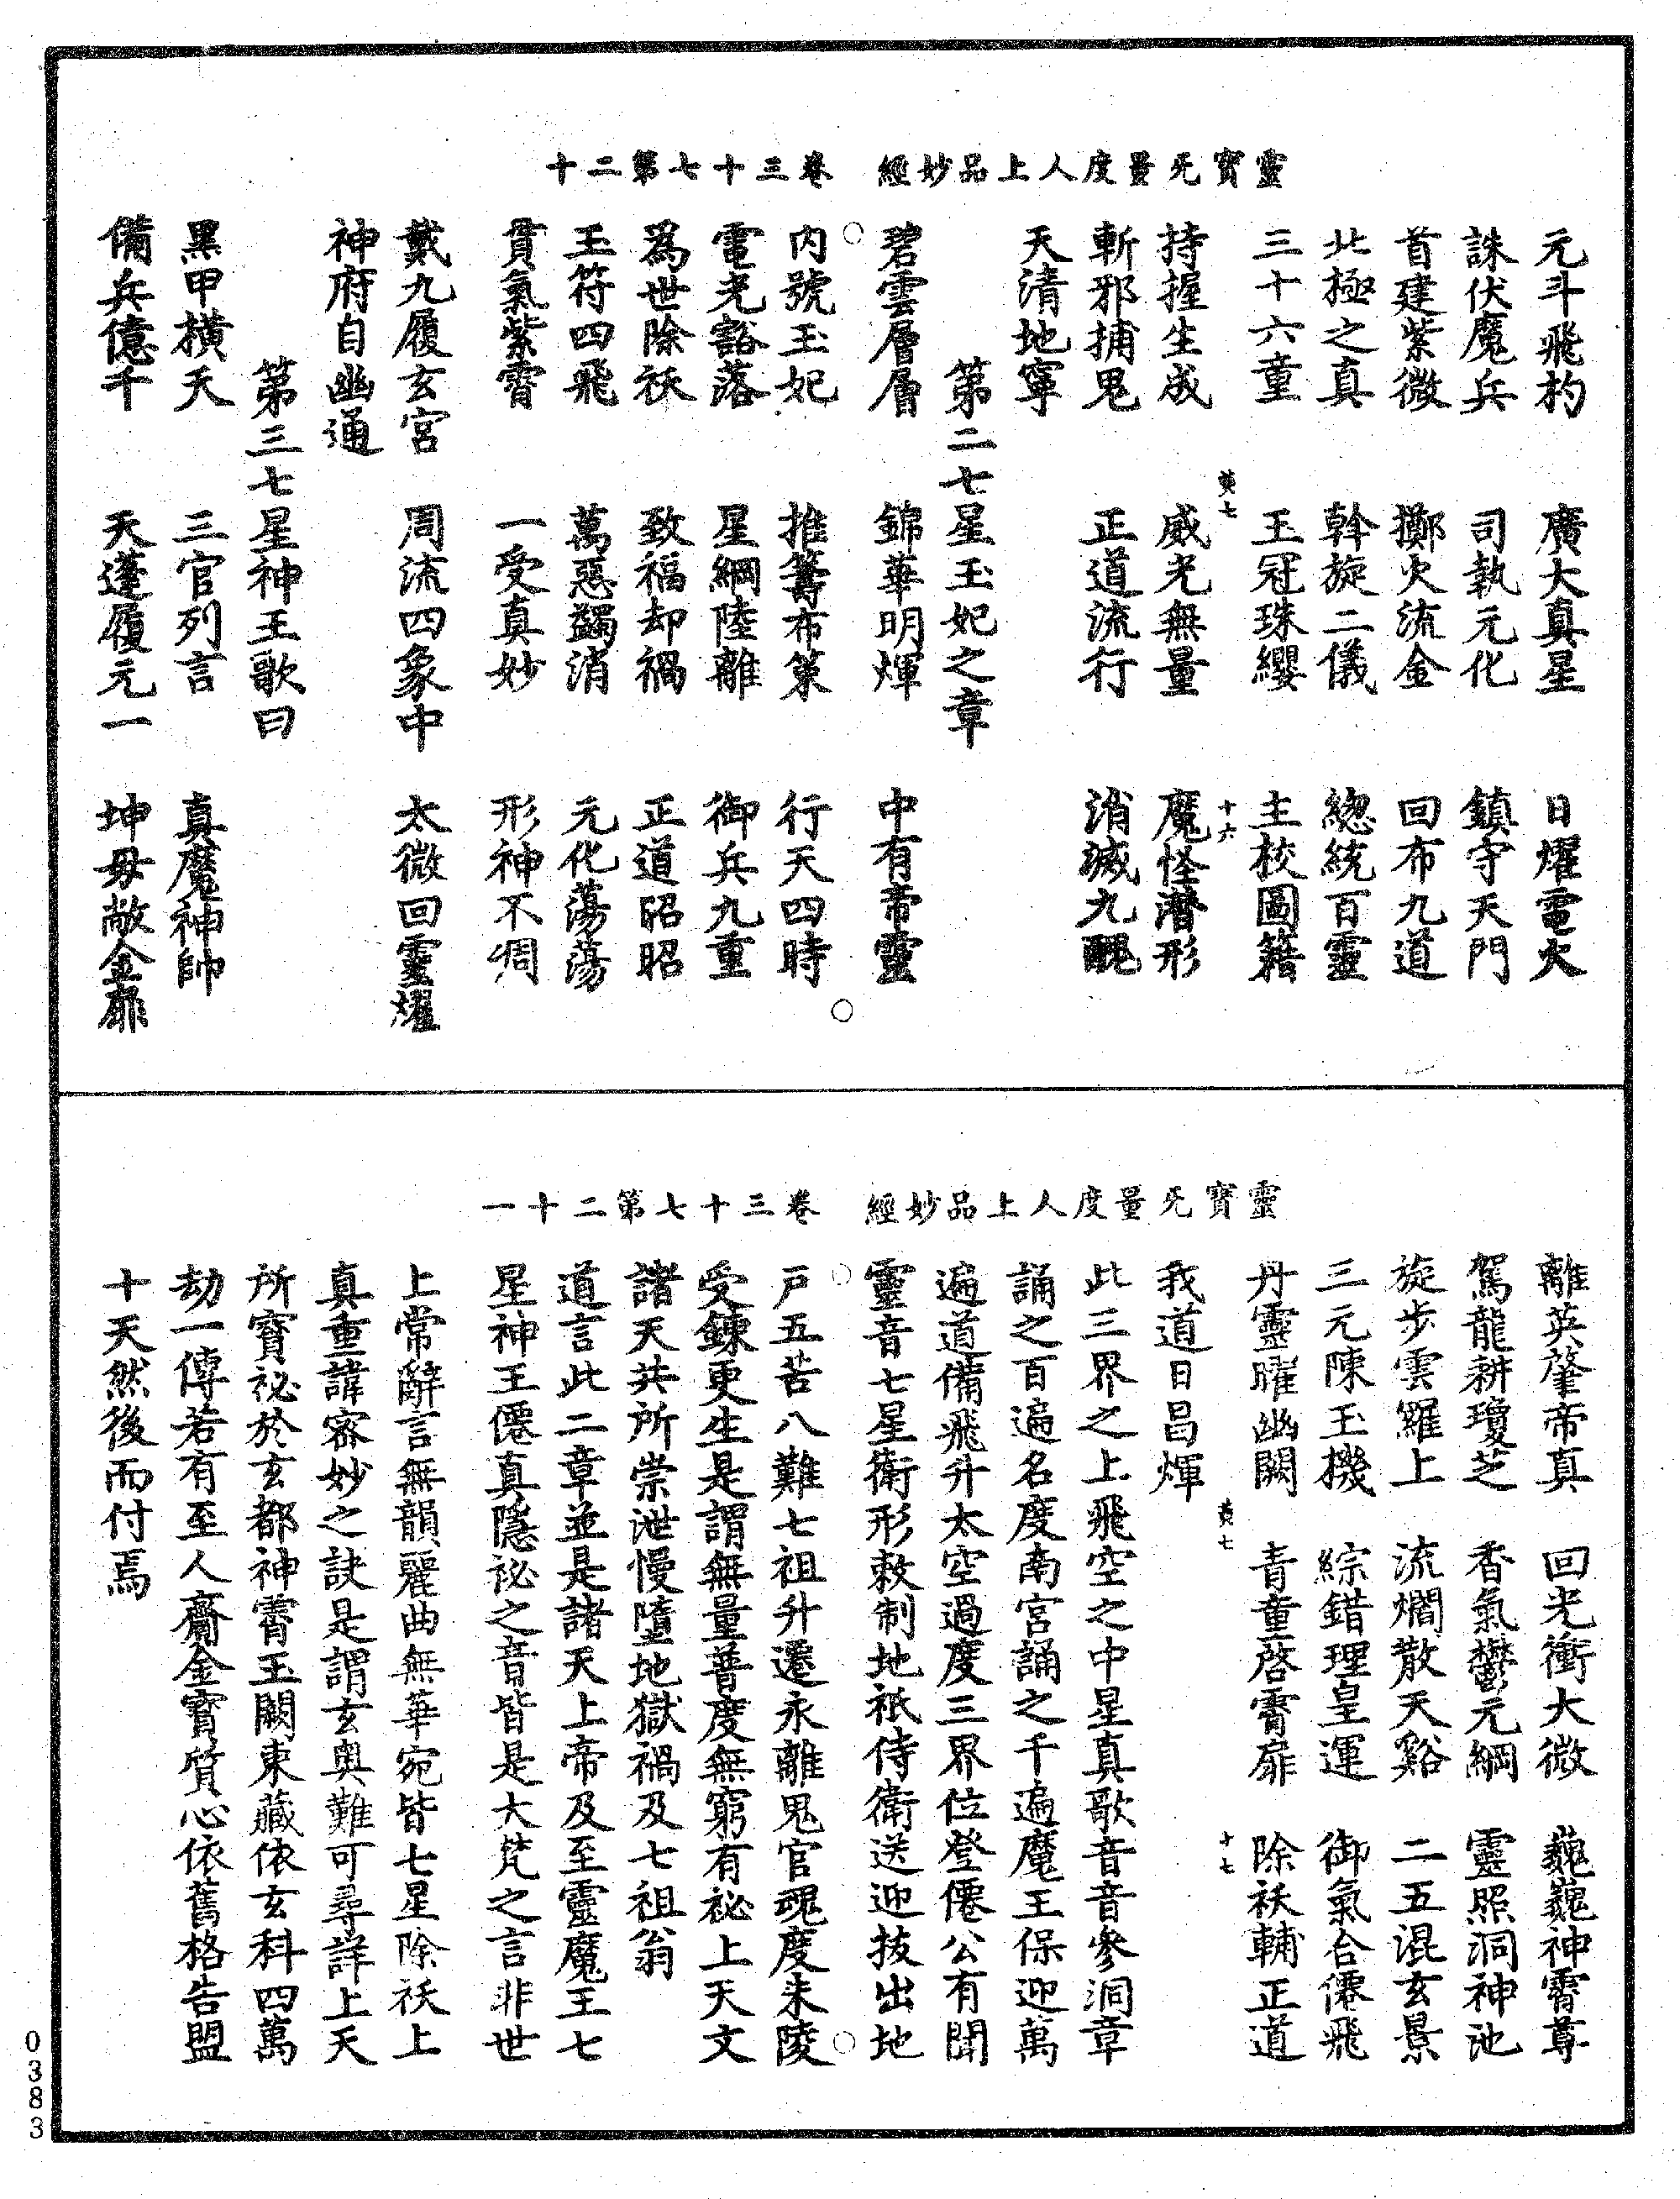 靈寶无量度人上品妙經　卷三十七第二十
元斗飛杓　廣大真星　日燿電火
誅伏魔兵　司執元化　鎮守天門
首建紫微　擲火流金　回布九道
北極之真　斡旋二儀　總統百靈
三十六童　玉冠珠纓　主校圖籍
黃七　十六
持握生成　威光無量　魔怪潛形
斬邪捕鬼　正道流行　消滅九醜
天清地寧
第二七星玉妃之章
碧雲層層　錦華明煇　中有帝靈
内號玉妃　推籌布策　行天四時
電光豁落　星綱陸離　御兵九重
為世除祅　致福却禍　正道昭昭
玉符四飛　萬惡蠲消　元化蕩蕩
貫氣紫霄　一受真妙　形神不凋
戴九履玄宮　周流四象中　太微回靈燿
神府自幽通
第三七星神王歌曰
黑甲横天　三官列言　真魔神帥
備兵億千　天蓬履元一　坤母敞金扉
靈寶无量度人上品妙經　卷三十七第二十一
離英肇帝真　回光衝大微　巍巍神霄尊
駕龍耕瓊芝　香氣鬱元綱　靈照洞神池
旋步雲羅上　流爓散天谿　二五混玄景
三元陳玉機　綜錯理皇運　御氣合僊飛
丹靈曜幽闕　青童啓霄扉　除祅輔正道
黃七　十七
我道日昌煇
此三界之上飛空之中星真歌音音參洞章
誦之百遍名度南宮誦之千遍魔王保迎萬
遍道備飛升太空過度三界位登僊公有聞
靈音七星衛形敕制地祇侍衛送迎拔出地
戶五苦八難七祖升遷永離鬼官魂度朱陵
受鍊更生是謂無量普度無窮有祕上天文
諸天共所崇泄慢墮地獄禍及七祖翁
道言此二章並是諸天上帝及至靈魔王七
星神王僊真隱祕之音皆是大梵之言非世
上常辭言無韻麗曲無華宛皆七星除祅上
真重諱密妙之訣是謂玄奥難可尋詳上天
所寶祕於玄都神霄玉闕東藏依玄科四萬
劫一傳若有至人齎金寶質心依舊格告盟
十天然後而付焉
0383